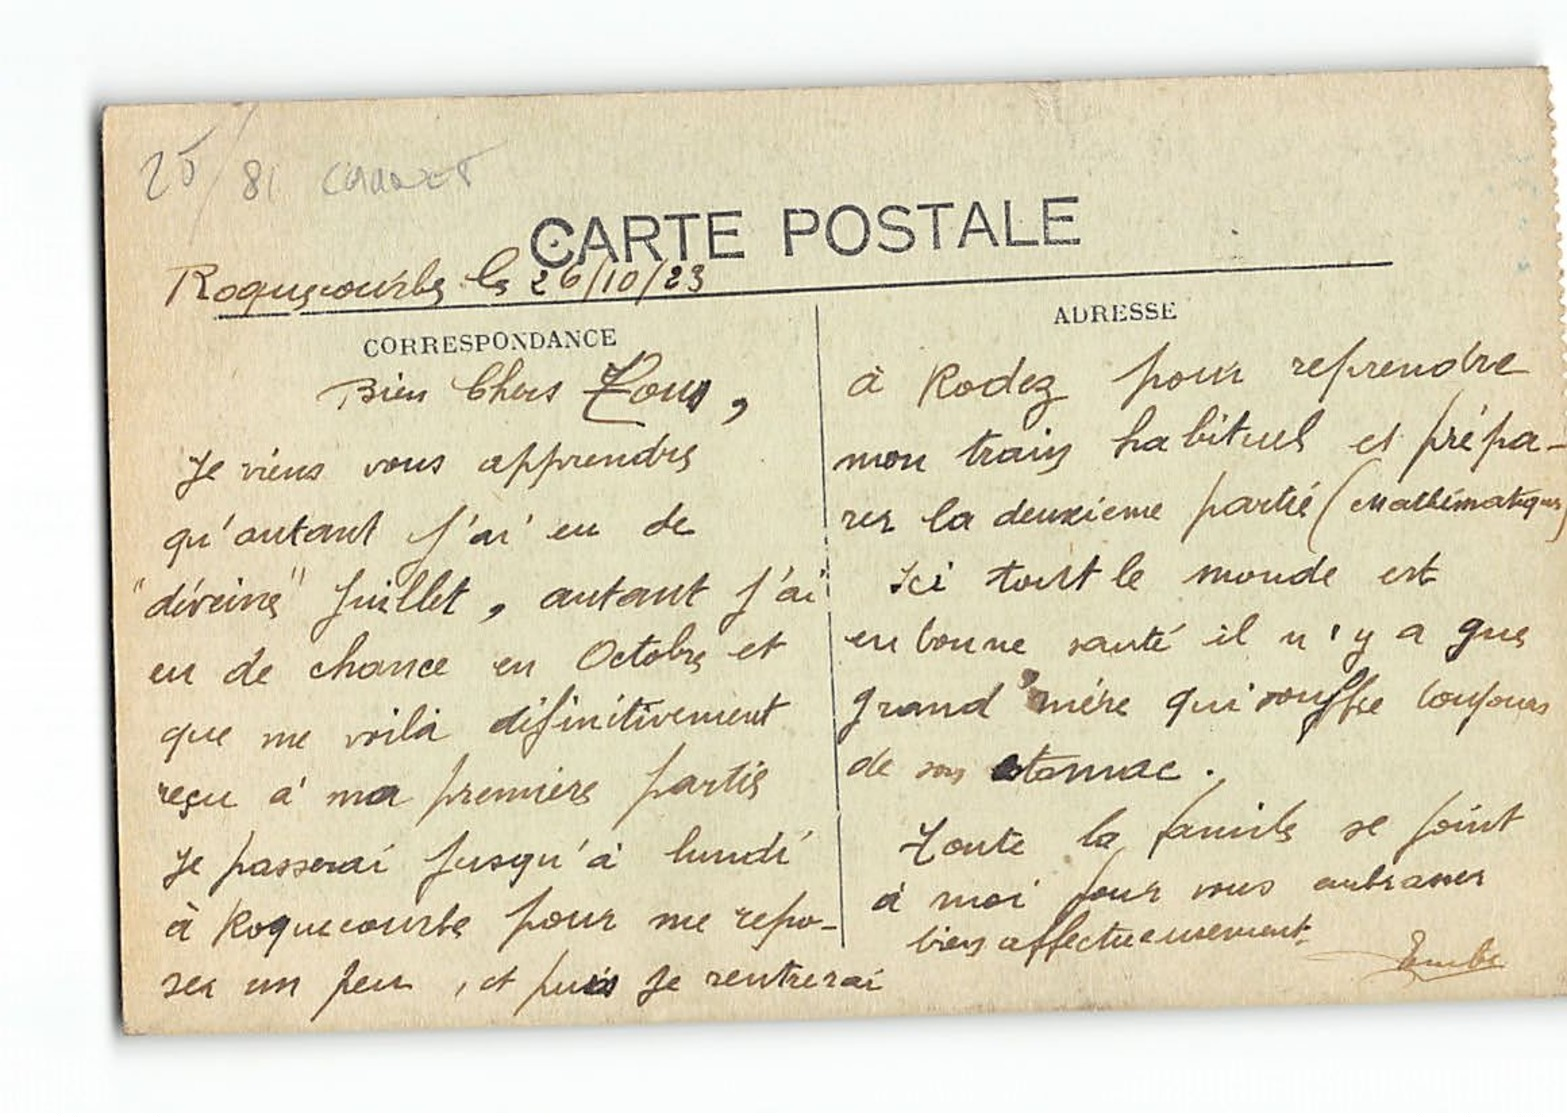 25/81 CARNET
CARTE POSTALE
Roquecourbe le 26/10/23
CORRESPONDANCE
Bien Chers Tous,
Je viens vous apprendre
qu'autant j'ai eu de
"déveine" Juillet, autant j'ai
eu de chance en Octobre et
que me voilà définitivement
reçu à ma première partie
Je passerai jusqu'à lundi
à Roquecourbe pour me repo-
ser un peu, et puis je rentrerai
ADRESSE
à Rodez pour reprendre
mon train habituel et prépa-
rer la deuxième partie (Mathématiques)
Ici tout le monde est
en bonne santé il n'y a que
grand'mère qui souffre toujours
de son estomac.
Toute la famille se joint
à moi pour vous embrasser
bien affectueusement.